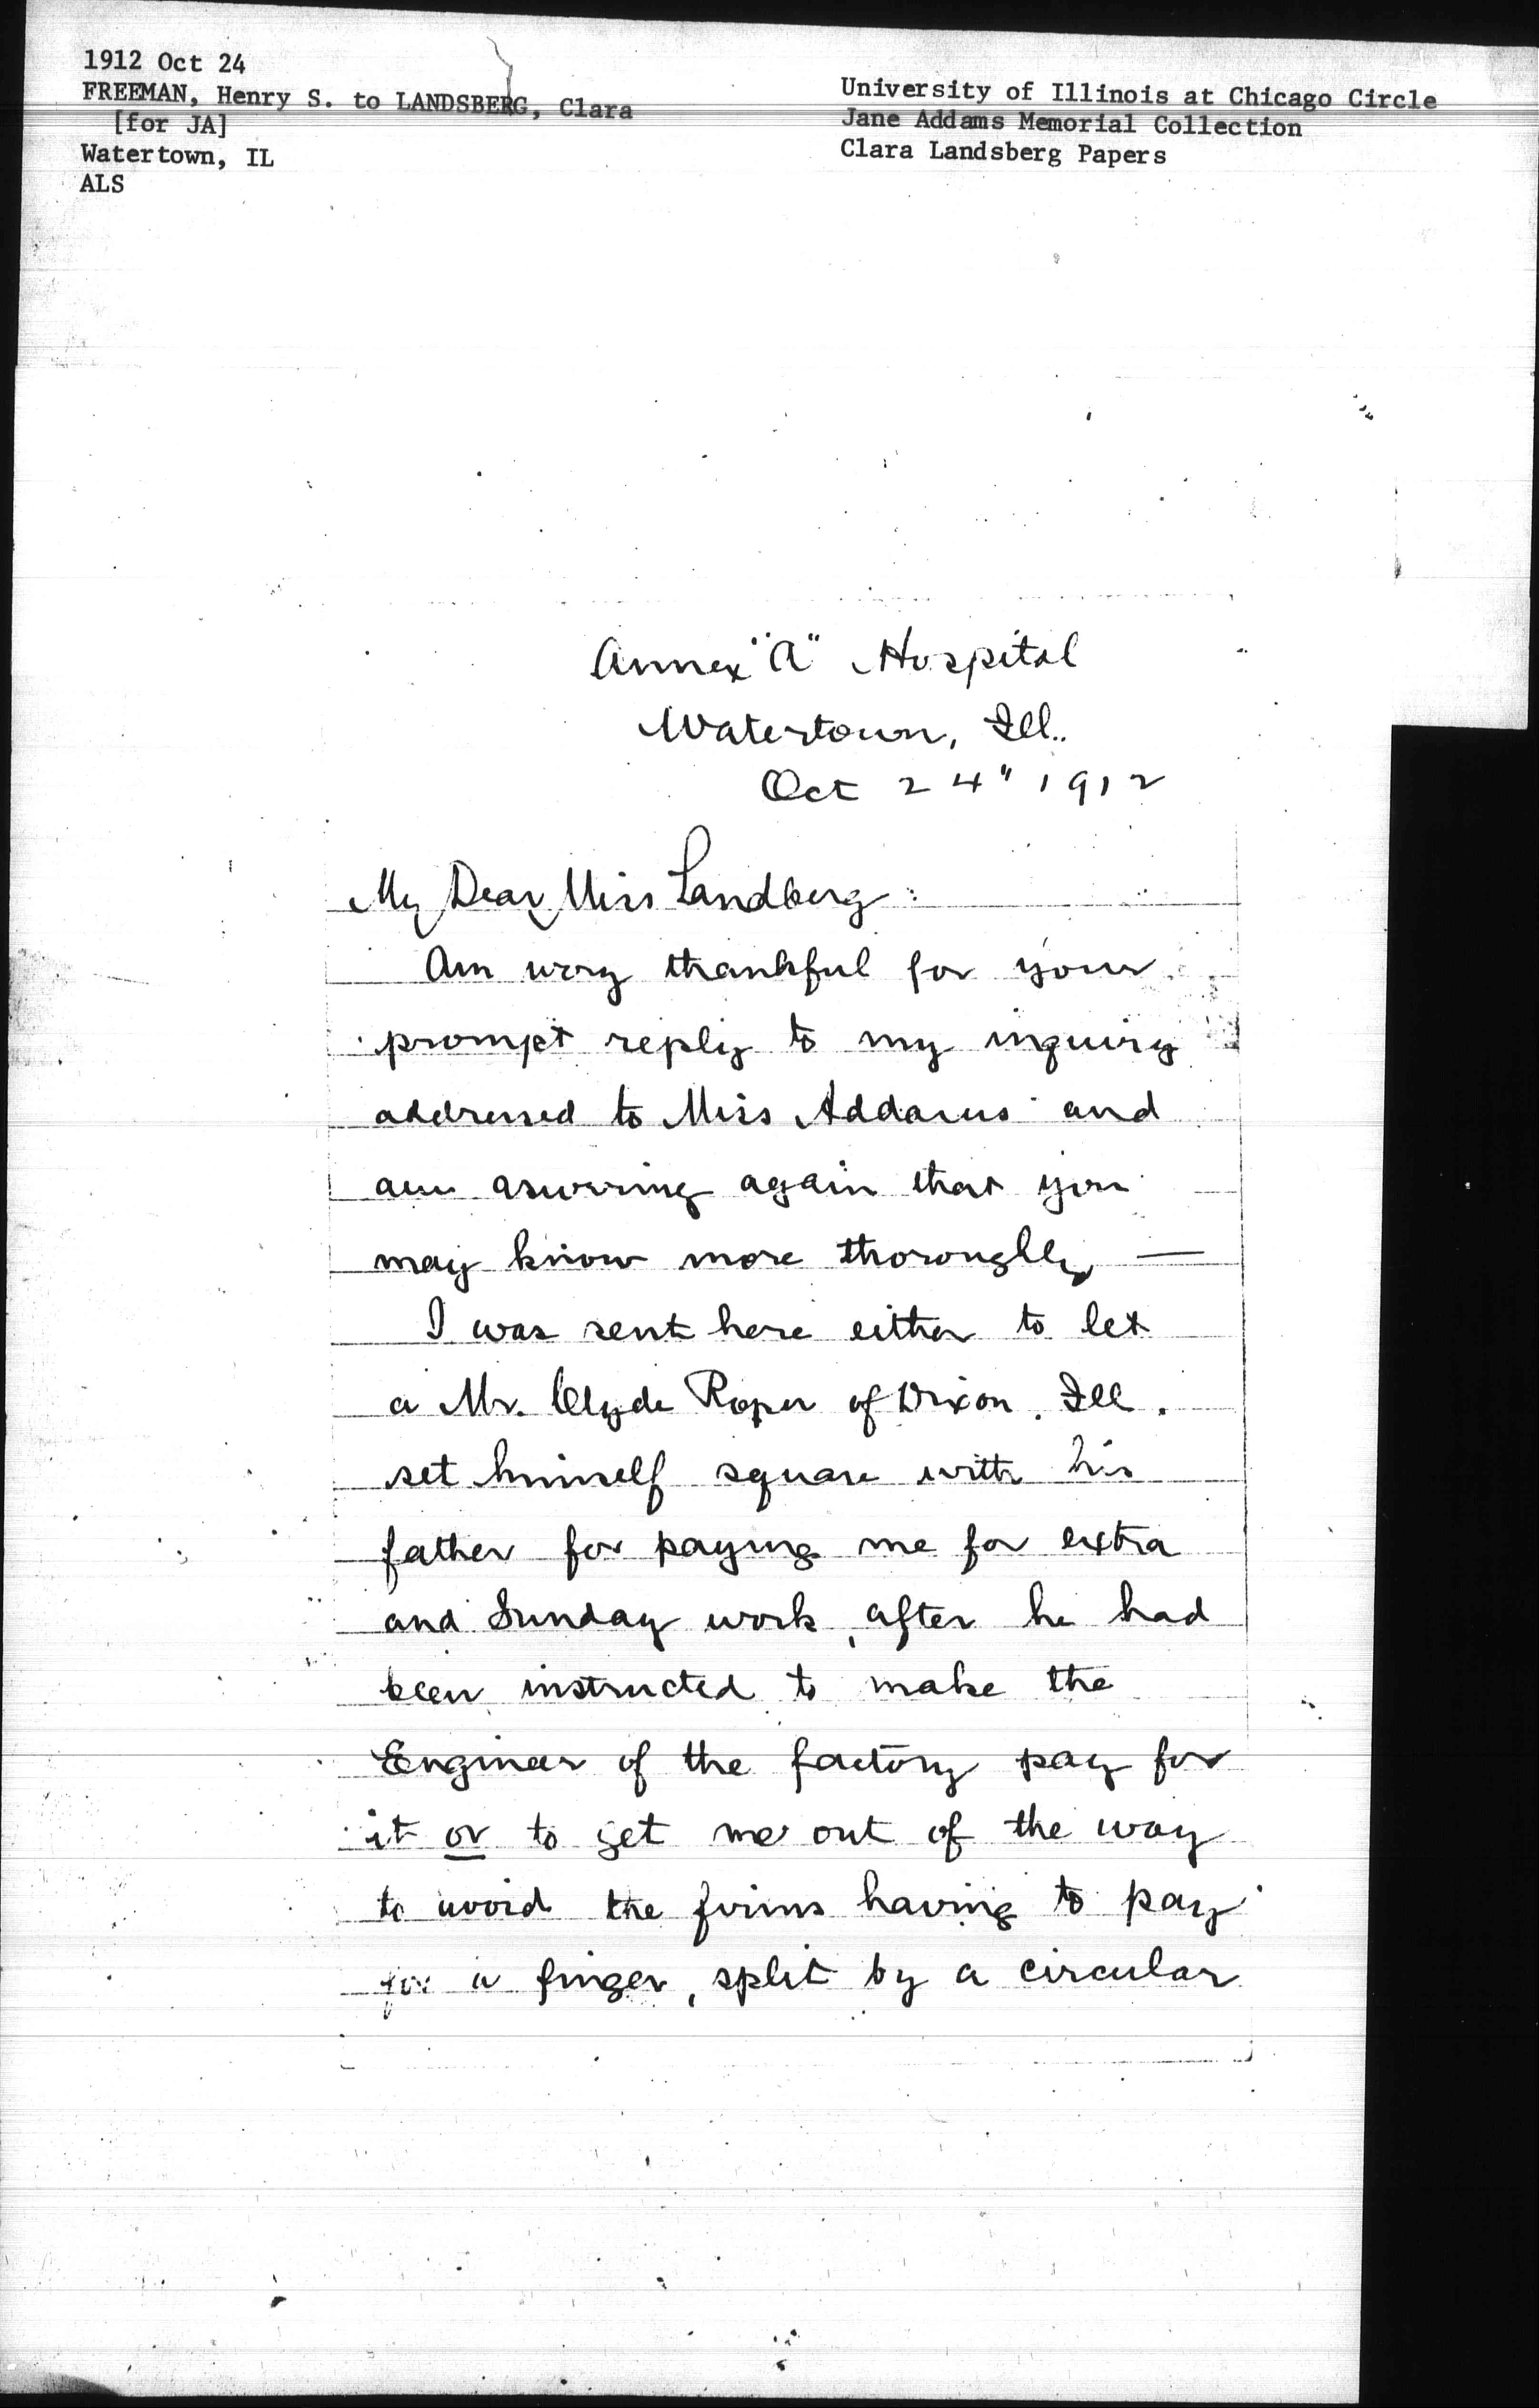 1912 Oct 24
FREEMAN, Henry S. to LANDSBERG, Clara
[for JA]
Watertown, IL
ALS
University of Illinois at Chicago Circle
Jane Addams Memorial Collection
Clara Landsberg Papers
Annex "A" Hospital
Watertown, Ill..
Oct 24" 1912
My Dear Miss Landberg:
Am very thankful for your
prompt reply to my inquiry
addressed to Miss Addams and
am aswering again that you
may know more thoroughly —
I was sent here either to let
a Mr. Clyde Roper of Dixon. Ill.
set himself square with his
father for paying me for extra
and Sunday work, after he had
been instructed to make the
Engineer of the factory pay for
it or to get me out of the way
to avoid the firms having to pay
for a finger, split by a circular